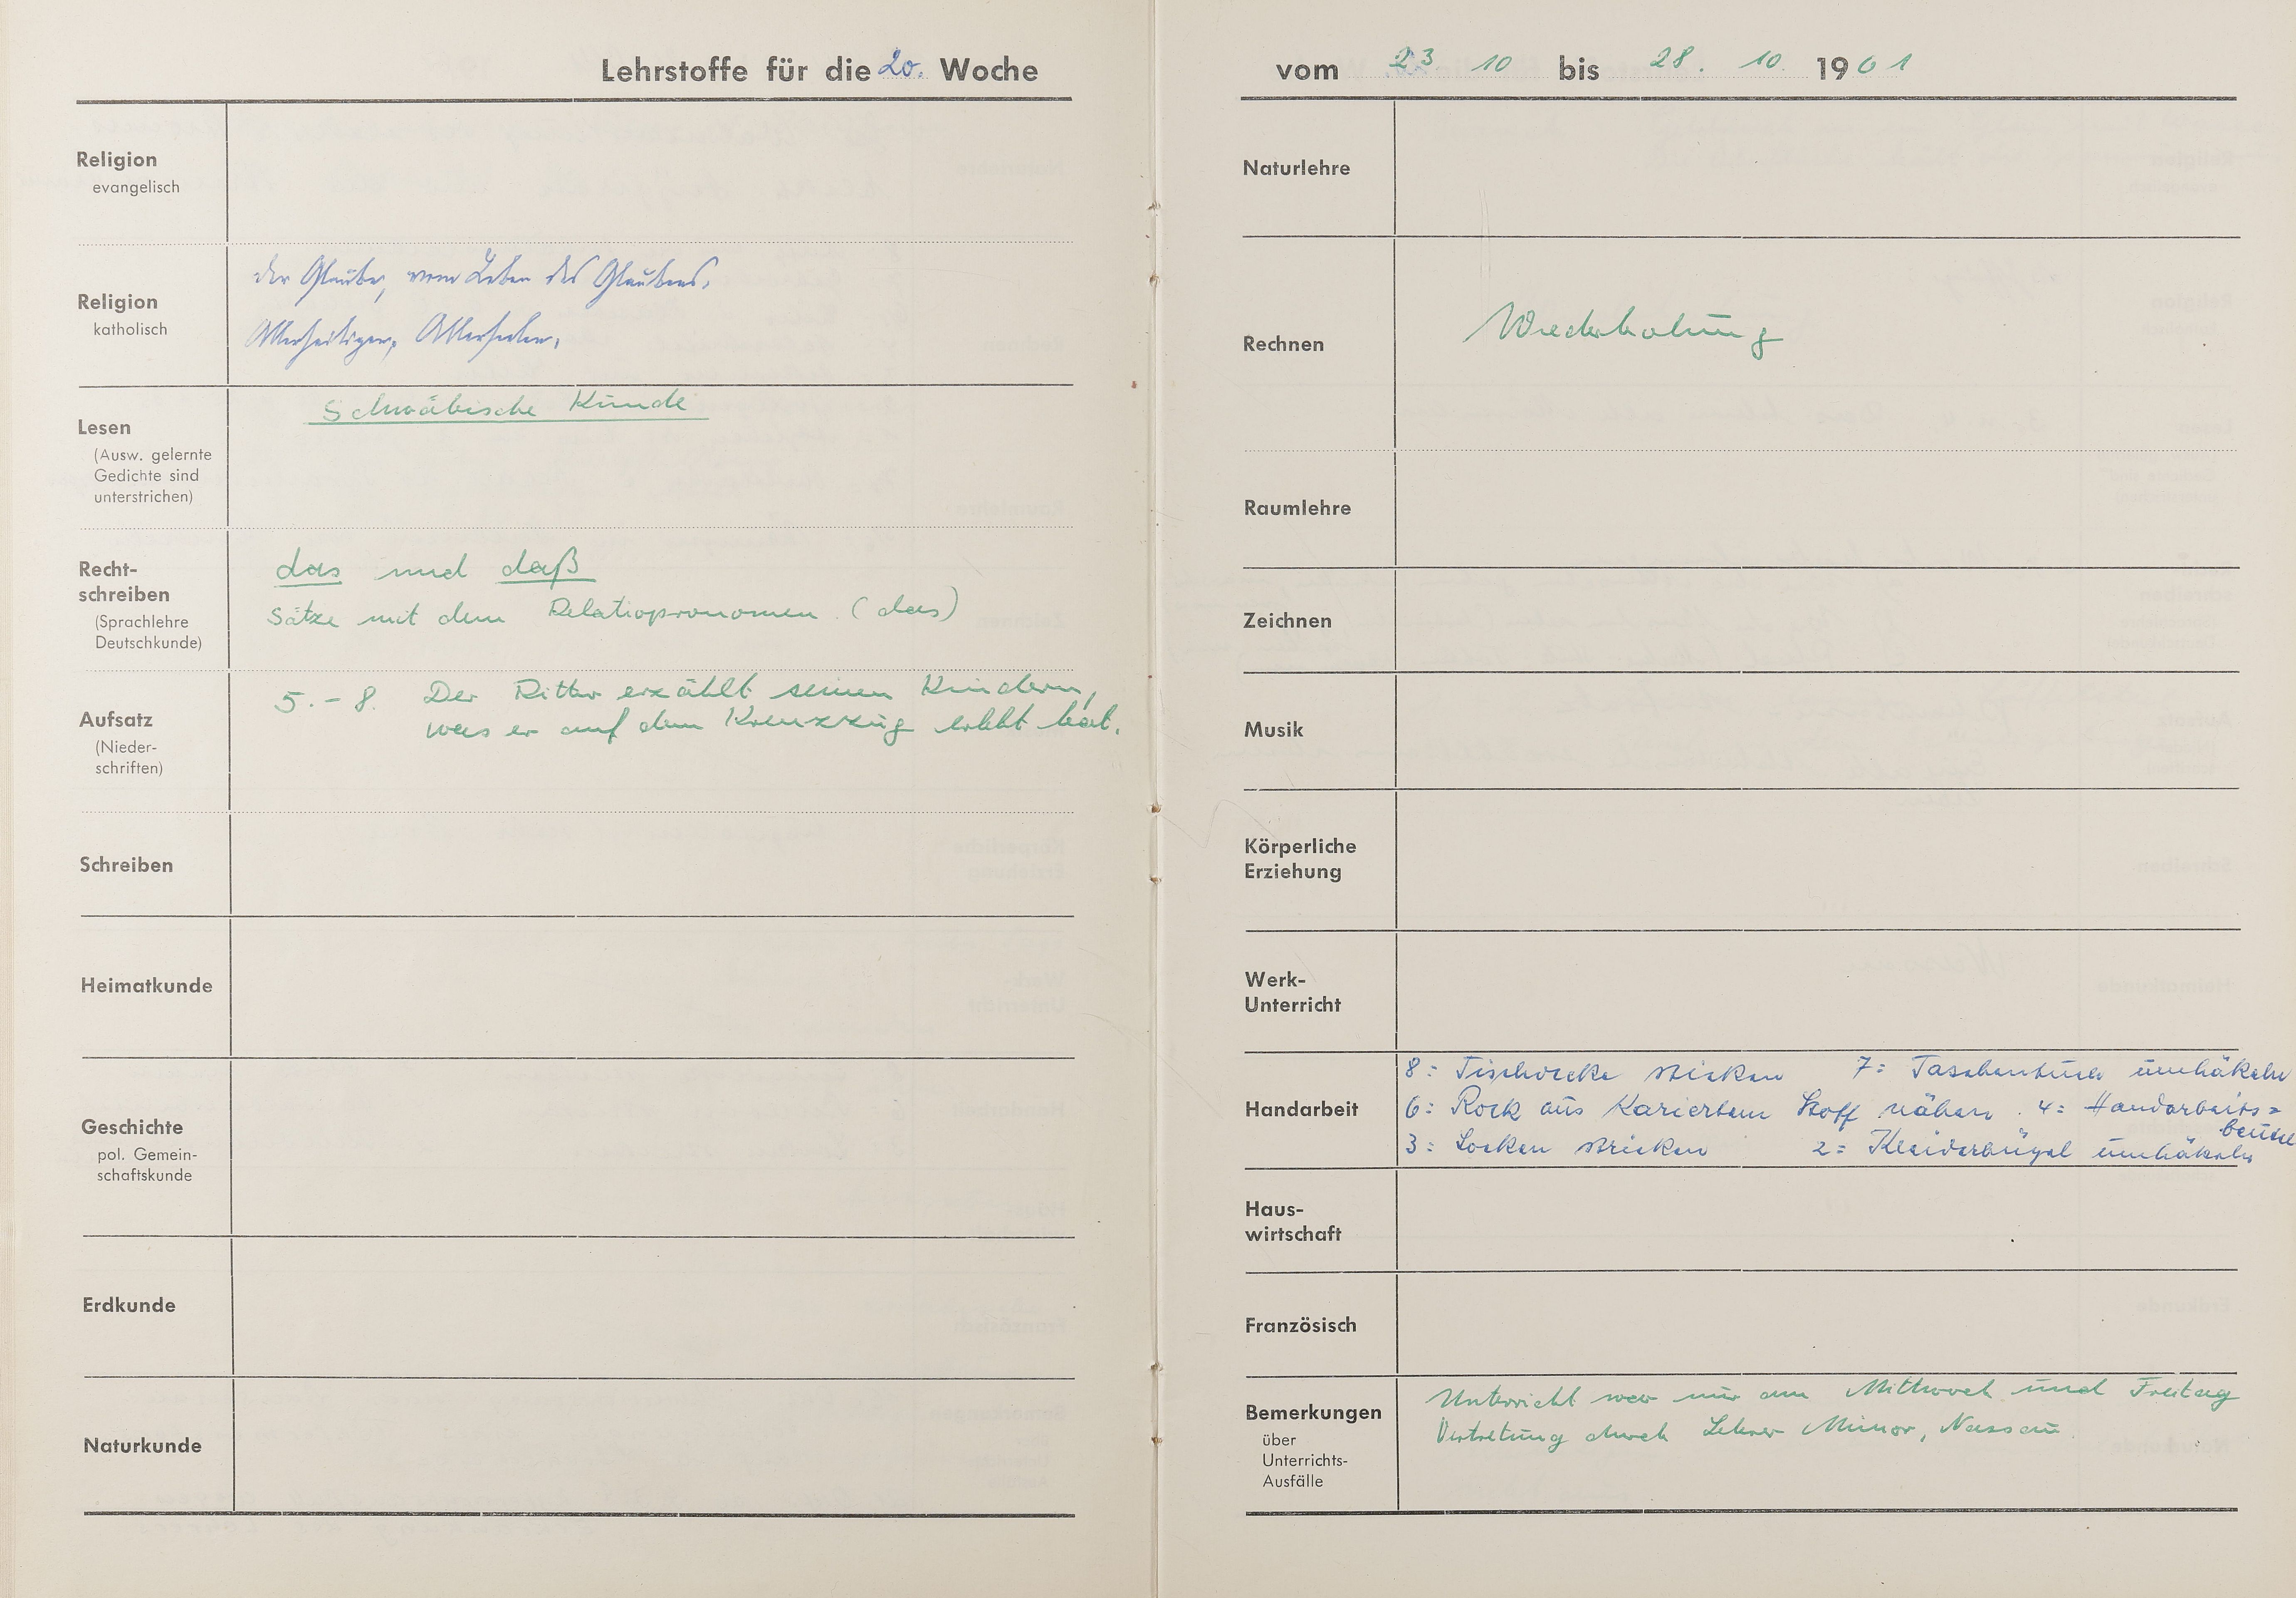 Lehrstoffe für die 20. Woche
Religion
evangelisch
Religion
katholisch
der Glaube, vom Leben des Glaubens.
Allerheiligen, Allerseelen.
Lesen
(Ausw. gelernte
Gedichte sind
unterstrichen)
Schwäbische Kunde
Recht-
schreiben
(Sprachlehre
Deutschkunde)
das und daß
Sätze mit dem Relatiopronomen (das)
Aufsatz
(Nieder-
schriften)
5.-8. Der Ritter erzählt seinen Kindern,
was er auf dem Kreuzzug erlebt hat.
Schreiben
Heimatkunde
Geschichte
pol. Gemein-
schaftskunde
Erdkunde
Naturkunde
vom 23 10 bis 28. 10. 1961
Naturlehre
Rechnen
Wiederholung
Raumlehre
Zeichnen
Musik
Körperliche
Erziehung
Werk-
Unterricht
Handarbeit
8: Tischdecke sticken 7: Taschentuch umhäkeln
6: Rock aus kariertem Stoff nähen. 4: Handarbeits=
beutel
3: Socken stricken 2: Kleiderbügel umhäkeln
Haus-
wirtschaft
Französisch
Bemerkungen
über
Unterrichts-
Ausfälle
Unterricht war nur am Mittwoch und Freitag
Vertretung durch Lehrer Minor, Nassau.